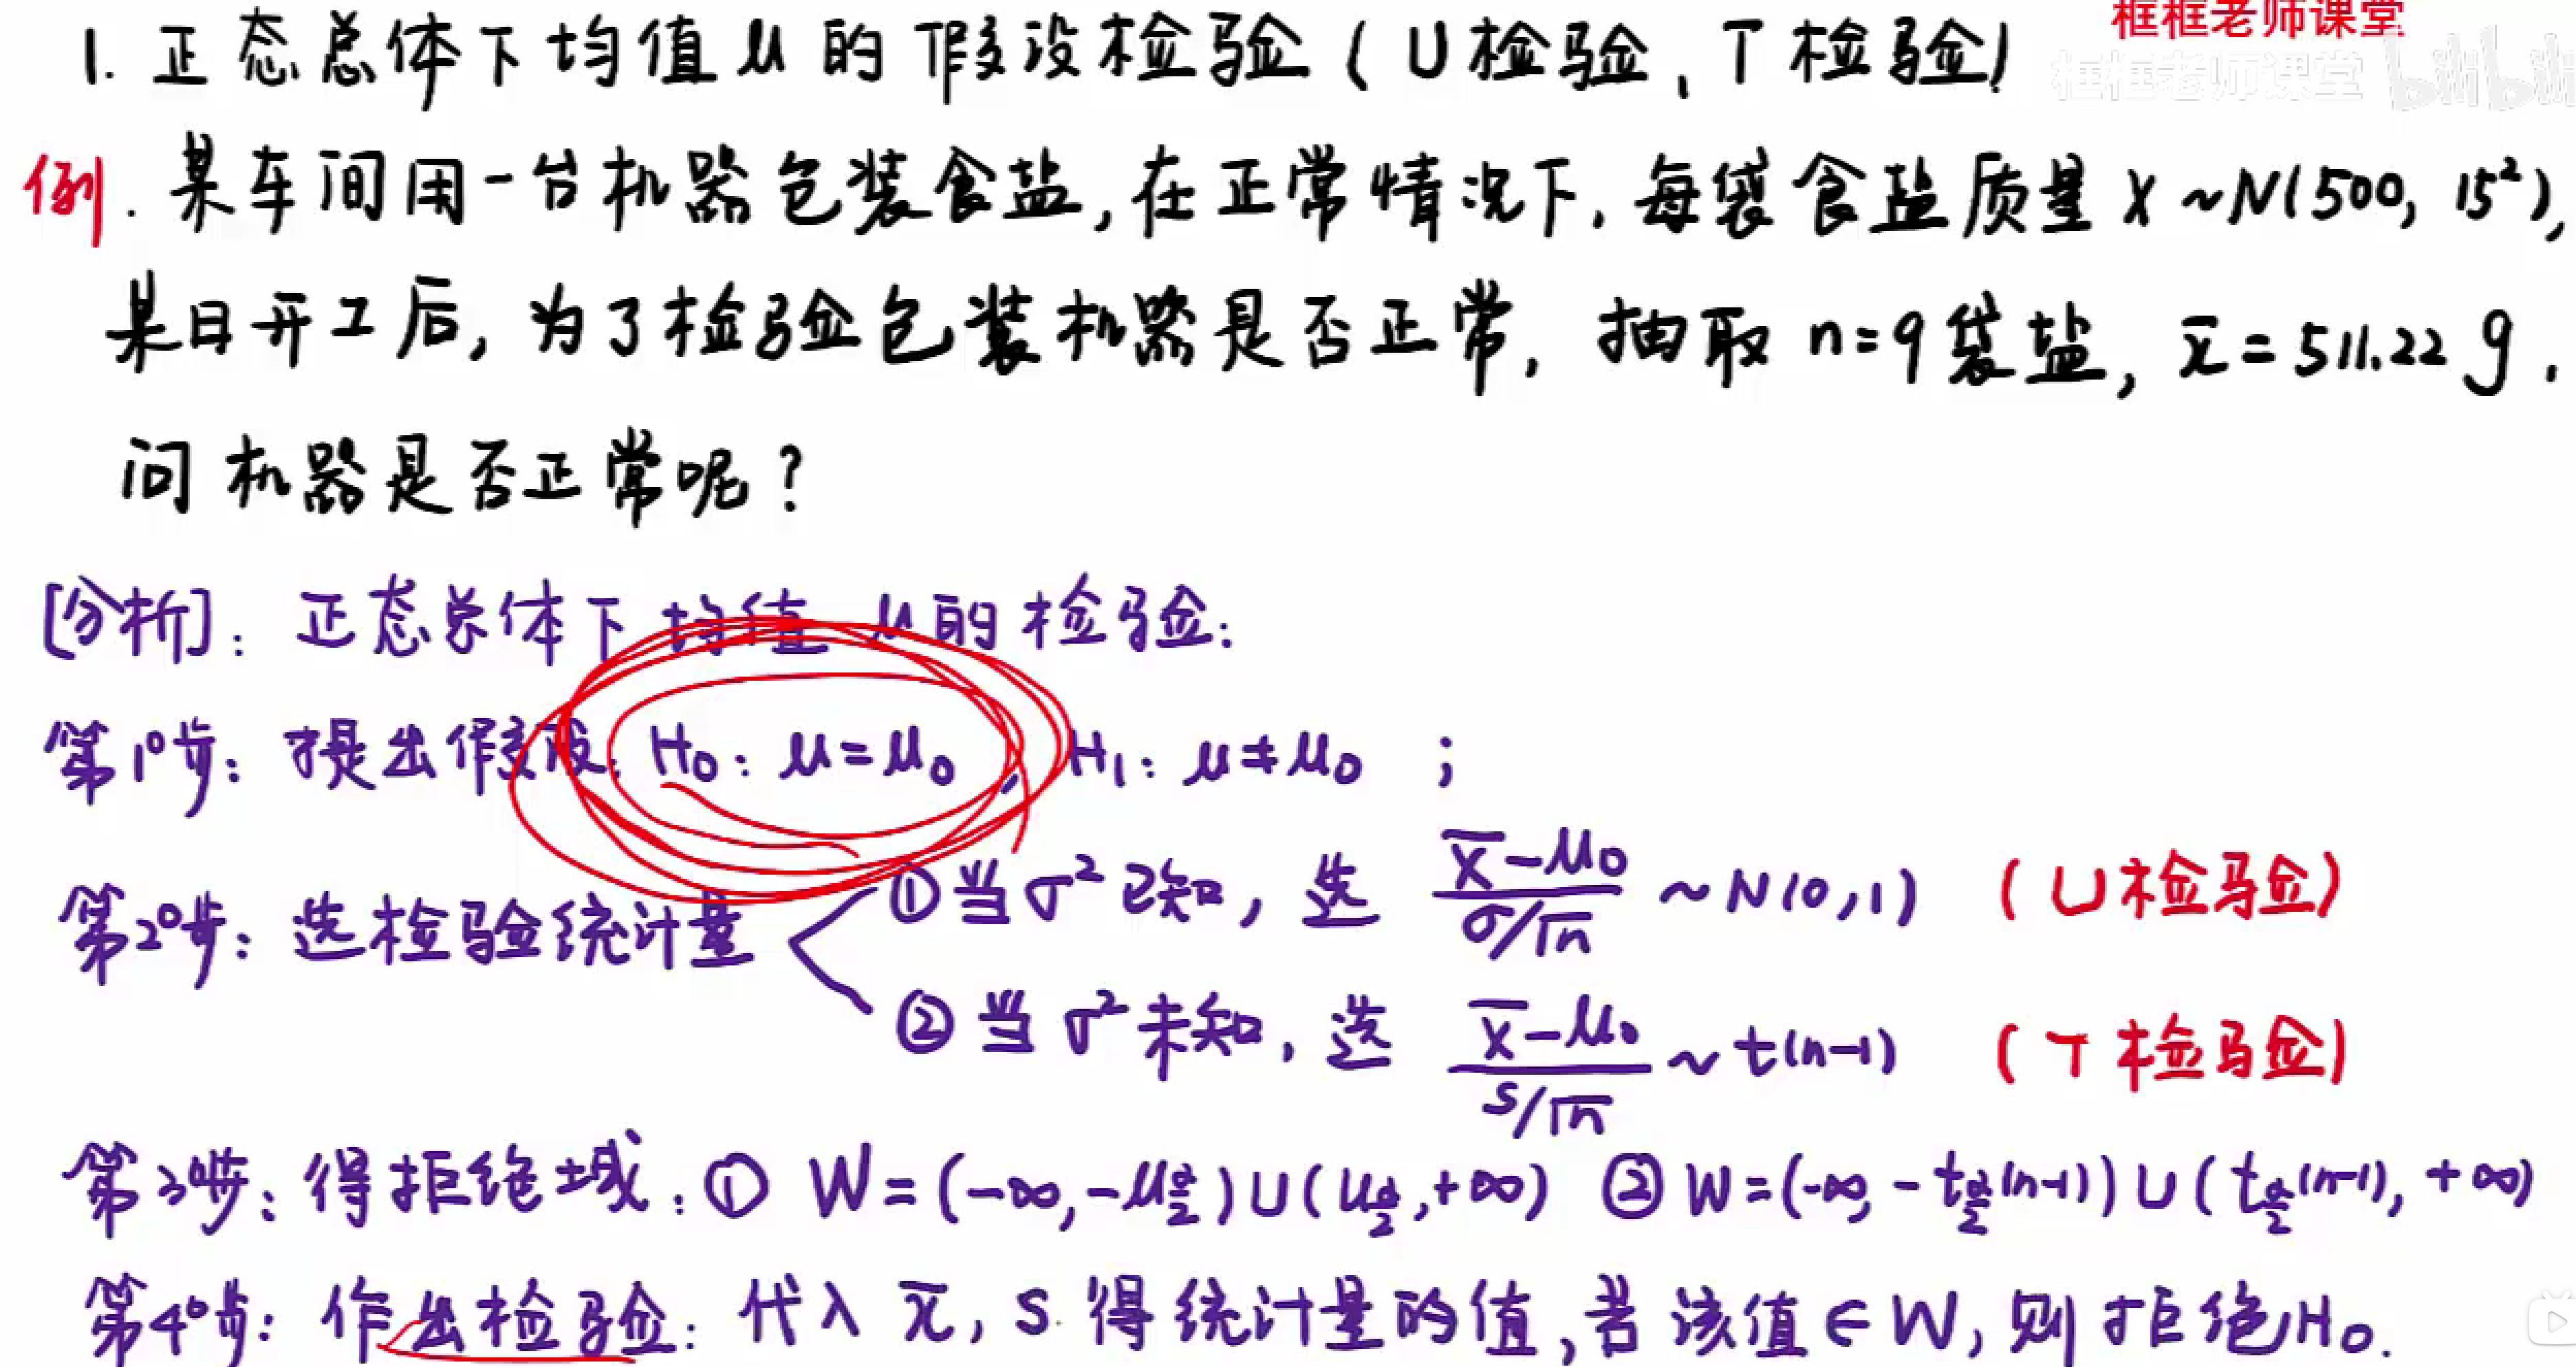 框框老师课堂
框框老师课堂 bilibili
1. 正态总体下均值 μ 的假设检验 (U检验, T检验)
例. 某车间用一台机器包装食盐,在正常情况下,每袋食盐质量 X ~N(500, 15²),
某日开工后, 为了检验包装机器是否正常, 抽取 n=9袋盐, x̄=511.22 g.
问机器是否正常呢?
[分析]: 正态总体下均值 μ的检验:
第1°步: 提出假设: H₀: μ=μ₀, H₁: μ≠μ₀ ;
第2°步: 选检验统计量 ①当σ²已知, 选 (x̄-μ₀)/(σ/√n) ~N(0,1) (U检验)
②当σ²未知, 选 (x̄-μ₀)/(s/√n) ~t(n-1) (T检验)
第3°步: 得拒绝域: ① W=(-∞,-μ_{α/2})∪(μ_{α/2},+∞) ② W=(-∞,-t_{α/2}(n-1))∪(t_{α/2}(n-1),+∞)
第4°步: 作出检验: 代入 x̄, S 得统计量的值,若该值∈W, 则拒绝H₀.